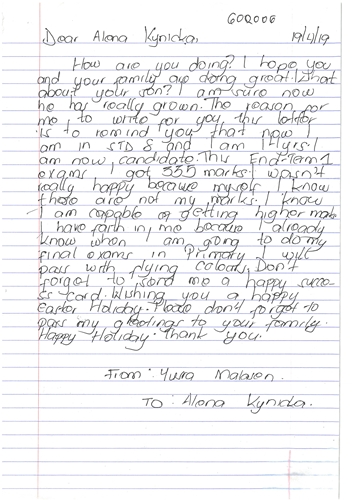 600006
Dear Alena Kynicka, 19/4/19
How are you doing? I hope you
and your family are doing great. What
about your son? I am sure now
he has really grown. The reason for
me to write for you this letter
is to remind you that now I
am in STD 8 and I am 14yrs. I
am now candidate. This End-Term 1
exams I got 335 marks. I wasn't
really happy because myself I know
those are not my marks. I know
I am capable of getting higher
I have faith in me because I already
know when I am going to do my
final exams in Primary I will
pass with flying colours. Don't
forget to send me a happy succe-
ss card. Wishing you a happy
Easter Holiday. Please don't forget to
pass my greetings to your family.
Happy Holiday. Thank you.
From: Yusra
To: Alena Kynicka.